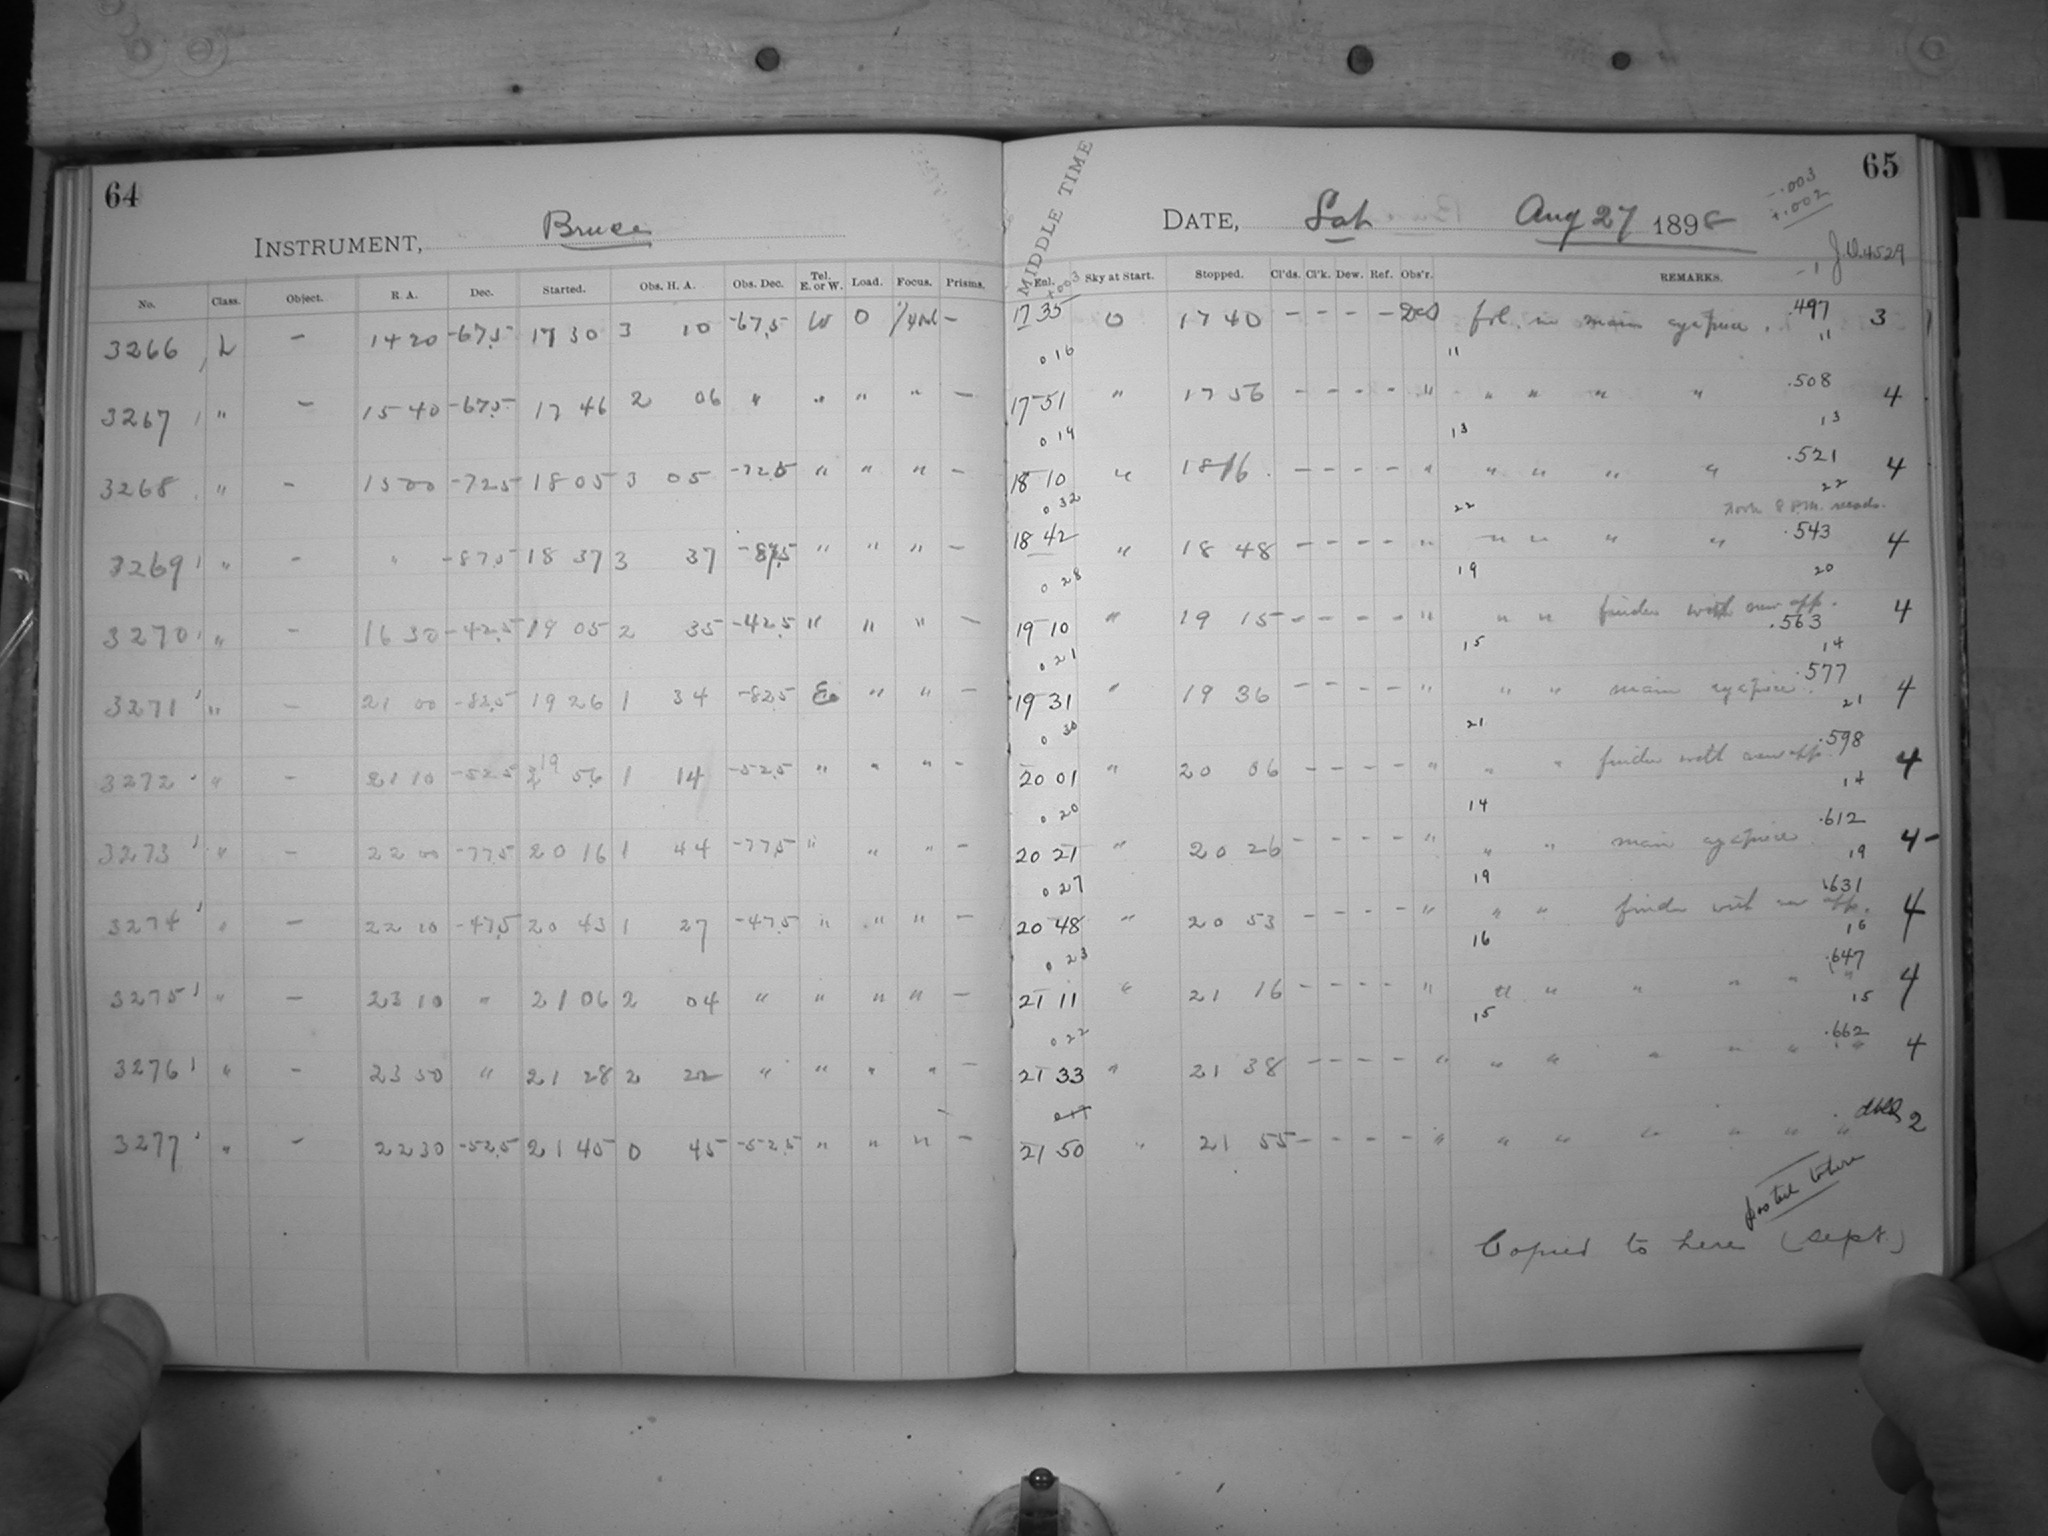 64
INSTRUMENT, Bruce
No. Class. Object. R. A. Dec. Started. Obs. H. A. Obs. Dec. Tel. E. or W. Load. Focus. Prisms.
3266 L – 14 20 -67.5 17 30 3 10 -67.5 W 0 –
3267 " – 15 40 -67.5 17 46 2 06 " " " " –
3268 " – 15 00 -72.5 18 05 3 05 -72.5 " " " –
3269 " – " -87.5 18 37 3 37 -87.5 " " " –
3270 " – 16 30 -42.5 19 05 2 35 -42.5 " " " –
3271 " – 21 00 -82.5 19 26 1 34 -82.5 E " " –
3272 " – 21 10 -52.5 19 56 1 14 -52.5 " " " –
3273 " – 22 00 -77.5 20 16 1 44 -77.5 " " " –
3274 " – 22 10 -47.5 20 43 1 27 -47.5 " " " –
3275 " – 23 10 " 21 06 2 04 " " " " –
3276 " – 23 50 " 21 28 2 22 " " " " –
3277 " – 22 30 -52.5 21 45 0 45 -52.5 " " " –
65
MIDDLE TIME
DATE, Sat Aug 27 1898
-.003
+.002
-1
J.D. 4529
Enl. Sky at Start. Stopped. Cl'ds. Cl'k. Dew. Ref. Obs'r. REMARKS.
+.003
17 35 0 17 40 – – – – fol. in main eyepiece. .497 3
0 16 11 11
17 51 " 17 56 – – – – " " " " " .508 4
0 19 13 13
18 10 " 18 16 – – – – " " " " " .521 4
0 32 22 22
Took 8 P.M. reads.
18 42 " 18 48 – – – – " " " " " .543 4
0 28 19 20
19 10 " 19 15 – – – – " " " finder with new app. .563 4
0 21 15 14
19 31 " 19 36 – – – – " " " main eyepiece. .577 4
0 30 21 21
20 01 " 20 06 – – – – " " " finder with new app. .598 4
0 20 14 14
20 21 " 20 26 – – – – " " " main eyepiece .612 4-
0 27 19 19
20 48 " 20 53 – – – – " " " finder with new app. .631 4
0 23 16 16
21 11 " 21 16 – – – – " " " " " " " .647 4
0 22 15 15
21 33 " 21 38 – – – – " " " " " " " .662 4
0 17
21 50 " 21 55 – – – – " " " " " " " 2
posted to here
Copied to here (Sept.)